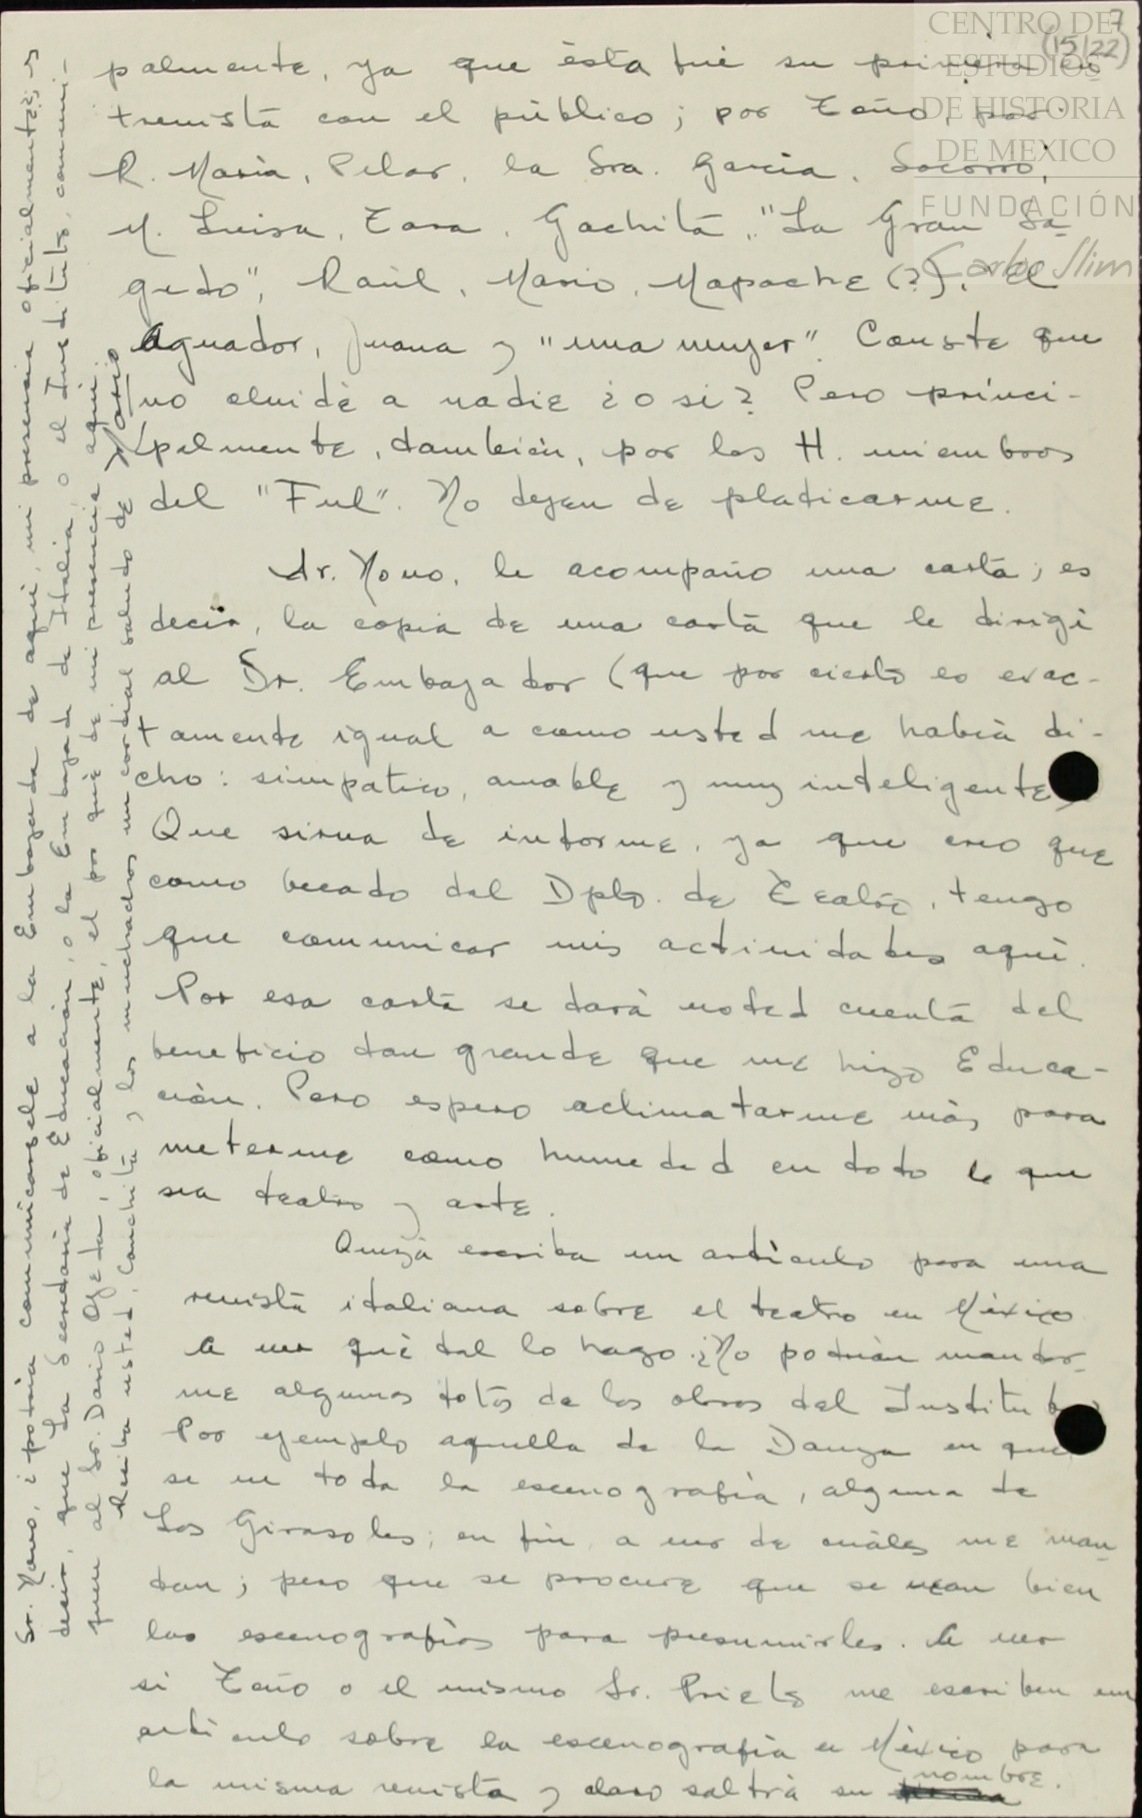 7
(15/22)
CENTRO DE
ESTUDIOS
DE HISTORIA
DE MEXICO
FUNDACIÓN
Carlos Slim
palmente, ya que ésta fué su primera en
trevista con el público; por Toño, por
R. María, Pilar, la Sra. García, Socorro,
M. Luisa, Tara, Gachita, "La Gran Sa-
gedo", Raúl, Mario, Mapache (?), el
Aguador, Juana y "una mujer". Conste que
no olvidé a nadie ¿o si? Pero princi-
palmente, también, por los H. miembros
del "Ful". No dejen de platicarme.
Sr. Novo, le acompaño una carta; es
decir, la copia de una carta que le dirigí
al Sr. Embajador (que por cierto es exac-
tamente igual a como usted me había di-
cho: simpatico, amable y muy inteligente)
Que sirva de informe, ya que creo que
como becado del Dpto. de Teatro, tengo
que comunicar mis actividades aquí.
Por esa carta se dará usted cuenta del
beneficio tan grande que me hizo Educa-
ción. Pero espero aclimatarme más para
meterme como humedad en todo lo que
sea teatro y arte.
Quizá escriba un artículo para una
revista italiana sobre el teatro en México
A ver qué tal lo hago. ¿No podrían mandar-
me algunas fotos de las obras del Instituto?
Por ejemplo aquella de la Danza en que
se ve toda la escenografía, alguna de
Los Girasoles; en fin, a ver de cuáles me man-
dan; pero que se procure que se vean bien
las escenografías para presumirles. A ver
si Toño o el mismo Sr. Prieto me escriben un
artículo sobre la escenografía en México para
la misma revista y claro saldrá su nombre.
Sr. Novo, ¿podría comunicarsele a la Embajada de aquí, mi presencia oficialmente?; es
decir, que la Secretaría de Educación, o la Embajada de Italia o el Instituto, comuni-
quen al Sr. Dario Ojeda, oficialmente, el por qué de mi presencia aquí.
Reciba usted, Conchita y los muchachos un cordial saludo de Mario